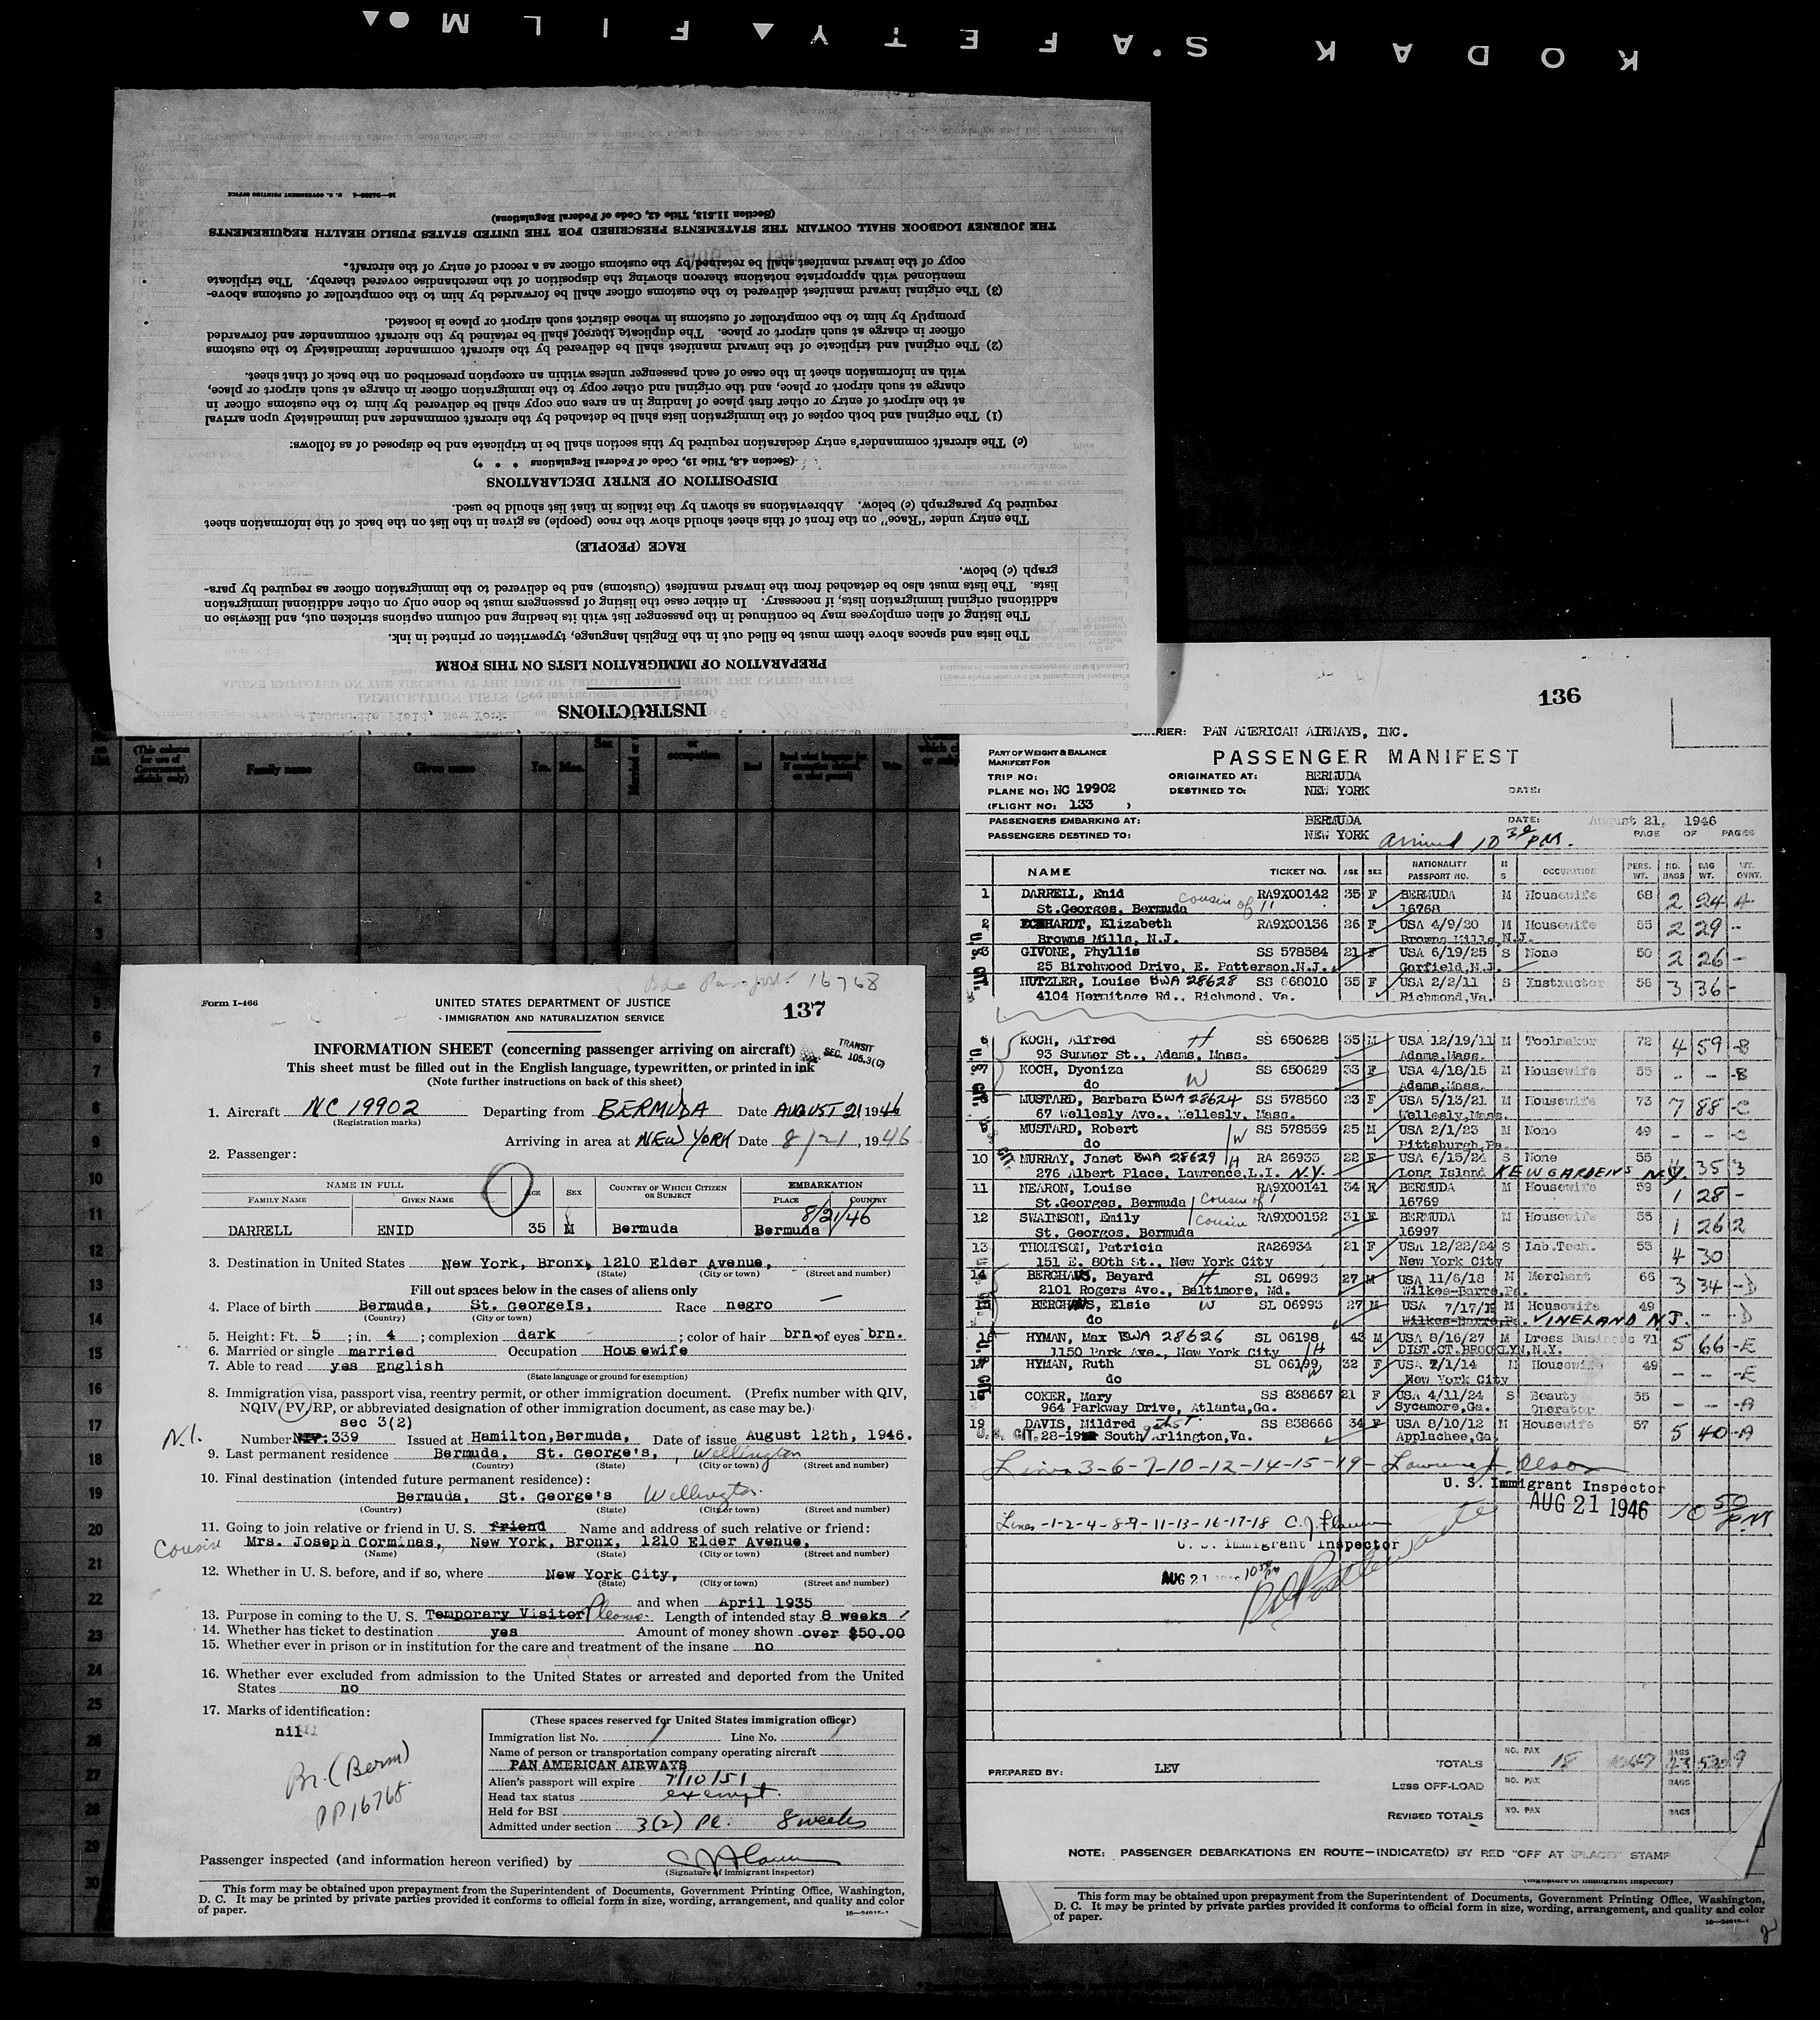 KODAK SAFETY FILM
INSTRUCTIONS
PREPARATION OF IMMIGRATION LISTS ON THIS FORM
The lists and spaces above them must be filled out in the English language, typewritten or printed in ink.
The listing of alien employees may be continued in the passenger list with its heading and column captions stricken out, and likewise on
additional original immigration lists, if necessary. In either case the listing of passengers must be done only on other additional immigration
lists. The lists must also be detached from the inward manifest (Customs) and be delivered to the immigration officer as required by para-
graph (c) below.
RACE (PEOPLE)
The entry under "Race" on the front of this sheet should show the race (people) as given in the list on the back of the information sheet
required by paragraph (c) below. Abbreviations as shown by the italics in that list should be used.
DISPOSITION OF ENTRY DECLARATIONS
(Section 4.8, Title 19, Code of Federal Regulations * * *)
(c) The aircraft commander's entry declaration required by this section shall be in triplicate and be disposed of as follows:
(1) The original and both copies of the immigration lists shall be detached by the aircraft commander and immediately upon arrival
at the airport of entry or other first place of landing in an area one copy shall be delivered by him to the customs officer in
charge at such airport or place, and the original and other copy to the immigration officer in charge at such airport or place,
with an information sheet in the case of each passenger unless within an exception prescribed on the back of that sheet.
(2) The original and triplicate of the inward manifest shall be delivered by the aircraft commander immediately to the customs
officer in charge at such airport or place. The duplicate thereof shall be retained by the aircraft commander and forwarded
promptly by him to the comptroller of customs in whose district such airport or place is located.
(3) The original inward manifest delivered to the customs officer shall be forwarded by him to the comptroller of customs above-
mentioned with appropriate notations thereon showing the disposition of the merchandise covered thereby. The triplicate
copy of the inward manifest shall be retained by the customs officer as a record of entry of the aircraft.
THE JOURNEY LOGBOOK SHALL CONTAIN THE STATEMENTS PRESCRIBED FOR THE UNITED STATES PUBLIC HEALTH REQUIREMENTS
(Section 11.513, Title 42, Code of Federal Regulations)
U. S. GOVERNMENT PRINTING OFFICE
Family name Given name Yrs. Mos. Sex occupation Read
1
2
3
5
6
7
8
9
10
11
12
13
14
15
16
17
18
19
20
21
22
23
24
25
26
27
28
29
30
Passport 16768
Form I-466
UNITED STATES DEPARTMENT OF JUSTICE
IMMIGRATION AND NATURALIZATION SERVICE
137
TRANSIT
SEC. 105.3(C)
INFORMATION SHEET (concerning passenger arriving on aircraft)
This sheet must be filled out in the English language, typewritten, or printed in ink
(Note further instructions on back of this sheet)
1. Aircraft NC 19902 Departing from BERMUDA Date AUGUST 21, 1946
(Registration marks)
Arriving in area at NEW YORK Date 8/21, 1946
2. Passenger:
NAME IN FULL AGE SEX COUNTRY OF WHICH CITIZEN OR SUBJECT EMBARKATION
FAMILY NAME GIVEN NAME PLACE COUNTRY
8/21/46
DARRELL ENID 35 M Bermuda Bermuda
3. Destination in United States New York, Bronx, 1210 Elder Avenue,
(State) (City or town) (Street and number)
Fill out spaces below in the cases of aliens only
4. Place of birth Bermuda, St. GeorgeIs, Race negro
(Country) (City or town)
5. Height: Ft. 5 ; in. 4 ; complexion dark ; color of hair brn. of eyes brn.
6. Married or single married Occupation Housewife
7. Able to read yes English
(State language or ground for exemption)
8. Immigration visa, passport visa, reentry permit, or other immigration document. (Prefix number with QIV,
NQIV, PV, RP, or abbreviated designation of other immigration document, as case may be.)
sec 3(2)
N.I.
Number NIV: 339 Issued at Hamilton, Bermuda, Date of issue August 12th, 1946.
9. Last permanent residence Bermuda, St. George's, Wellington
(Country) (State) (City or town) (Street and number)
10. Final destination (intended future permanent residence):
Bermuda, St. George's Wellington
(Country) (State) (City or town) (Street and number)
11. Going to join relative or friend in U. S. friend Name and address of such relative or friend:
Cousin Mrs. Joseph Corminas, New York, Bronx, 1210 Elder Avenue,
(Name) (State) (City or town) (Street and number)
12. Whether in U. S. before, and if so, where New York City,
(State) (City or town) (Street and number)
and when April 1935
13. Purpose in coming to the U. S. Temporary Visitor Pleasure. Length of intended stay 8 weeks
14. Whether has ticket to destination yes Amount of money shown over $50.00
15. Whether ever in prison or in institution for the care and treatment of the insane no
16. Whether ever excluded from admission to the United States or arrested and deported from the United
States no
17. Marks of identification:
nil
Br. (Berm)
PP 16768
(These spaces reserved for United States immigration officer)
Immigration list No. 1 Line No. 1
Name of person or transportation company operating aircraft
PAN AMERICAN AIRWAYS
Alien's passport will expire 7/10/51
Head tax status exempt.
Held for BSI
Admitted under section 3(2) Pl. 8 weeks
Passenger inspected (and information hereon verified) by
(Signature of immigrant inspector)
This form may be obtained upon prepayment from the Superintendent of Documents, Government Printing Office, Washington,
D. C. It may be printed by private parties provided it conforms to official form in size, wording, arrangement, and quality and color
of paper.
136
CARRIER: PAN AMERICAN AIRWAYS, INC.
PART OF WEIGHT & BALANCE
MANIFEST FOR
PASSENGER MANIFEST
TRIP NO: ORIGINATED AT: BERMUDA
PLANE NO: NC 19902 DESTINED TO: NEW YORK DATE:
(FLIGHT NO: 133 )
PASSENGERS EMBARKING AT: BERMUDA DATE: August 21, 1946
PASSENGERS DESTINED TO: NEW YORK PAGE OF PAGES
Arrived 10 30 PM.
NAME TICKET NO. AGE SEX NATIONALITY PASSPORT NO. M S OCCUPATION PERS. WT. NO. BAGS BAG WT.
1 DARRELL, Enid RA9X00142 35 F BERMUDA M Housewife 68 2 24 A
St.Georges, Bermuda cousin of 11 16768
2 ECKHARDT, Elizabeth RA9X00156 26 F USA 4/9/20 M Housewife 55 2 29 -
Browns Mills, N.J. Browns Mills, N.J.
3 GIVONE, Phyllis SS 578584 21 F USA 6/19/25 S None 50 2 26 -
25 Birchwood Drive, E. Patterson, N.J. Garfield, N.J.
HUTZLER, Louise BWA 28628 SS 668010 35 F USA 2/2/11 S Instructor 56 3 36 -
4104 Hermitage Rd., Richmond, Va. Richmond, Va.
6 KOCH, Alfred H SS 650628 35 M USA 12/19/11 M Toolmaker 72 4 59 -B
93 Summer St., Adams, Mass. Adams, Mass.
7 KOCH, Dyoniza SS 650629 33 F USA 4/18/15 M Housewife 55 - - -B
do W Adams, Mass.
8 MUSTARD, Barbara BWA 28624 SS 578560 23 F USA 5/13/21 M Housewife 73 7 88 -C
67 Wellesly Ave., Wellesly, Mass. Wellesly, Mass.
9 MUSTARD, Robert SS 578559 25 M USA 2/1/23 M None 49 - - -C
do Pittsburgh, Pa.
10 MURRAY, Janet BWA 28629 RA 26933 22 F USA 6/15/24 S None 55 4 35 3
276 Albert Place, Lawrence, L.I. N.Y. Long Island KEW GARDENS N.Y.
11 NEARON, Louise RA9X00141 34 F BERMUDA M Housewife 59 1 28 -
St.Georges, Bermuda cousin of 1 16769
12 SWAINSON, Emily RA9X00152 31 F BERMUDA M Housewife 55 1 26 2
St. Georges, Bermuda cousin 16997
13 THOMPSON, Patricia RA26934 21 F USA 12/22/24 S Lab.Tech. 53 4 30
151 E. 80th St., New York City New York City
14 BERGHAUS, Bayard H SL 06993 27 M USA 11/6/18 M Merchant 66 3 34 -D
2101 Rogers Ave., Baltimore, Md. Wilkes-Barre, Pa.
15 BERGHAUS, Elsie W SL 06993 27 M USA 7/17/19 M Housewife 49 - - -D
do Wilkes-Barre, Pa. VINELAND N.J.
16 HYMAN, Max BWA 28626 SL 06198 43 M USA 8/16/27 M Dress Business 71 5 66 -E
1150 Park Ave., New York City H DIST.CT.BROOKLYN, N.Y.
17 HYMAN, Ruth SL 06199 32 F USA 7/1/14 M Housewife 49 - - -E
do W New York City
18 COKER, Mary SS 838667 21 F USA 4/11/24 S Beauty 55 - - -A
964 Parkway Drive, Atlanta, Ga. Sycamore, Ga. Operator
19 DAVIS, Mildred SS 838666 34 F USA 8/10/12 M Housewife 57 5 40 -A
South Arlington, Va. Applachee, Ga.
U. S. CIT.
Lines 3-6-7-10-12-14-15-19- Lawrence J. Olson
U. S. Immigrant Inspector
AUG 21 1946 10 50 P.M
Lines -1-2-4-8-9-11-13-16-17-18
U. S. Immigrant Inspector
AUG 21
PREPARED BY: LEV
TOTALS NO. PAX 18 BAGS
LESS OFF-LOAD NO. PAX BAGS
REVISED TOTALS NO. PAX BAGS
NOTE: PASSENGER DEBARKATIONS EN ROUTE—INDICATE(D) BY RED "OFF AT (PLACE)" STAMP
(Signature of immigrant inspector)
This form may be obtained upon prepayment from the Superintendent of Documents, Government Printing Office, Washington,
D. C. It may be printed by private parties provided it conforms to official form in size, wording, arrangement, and quality and color
of paper.